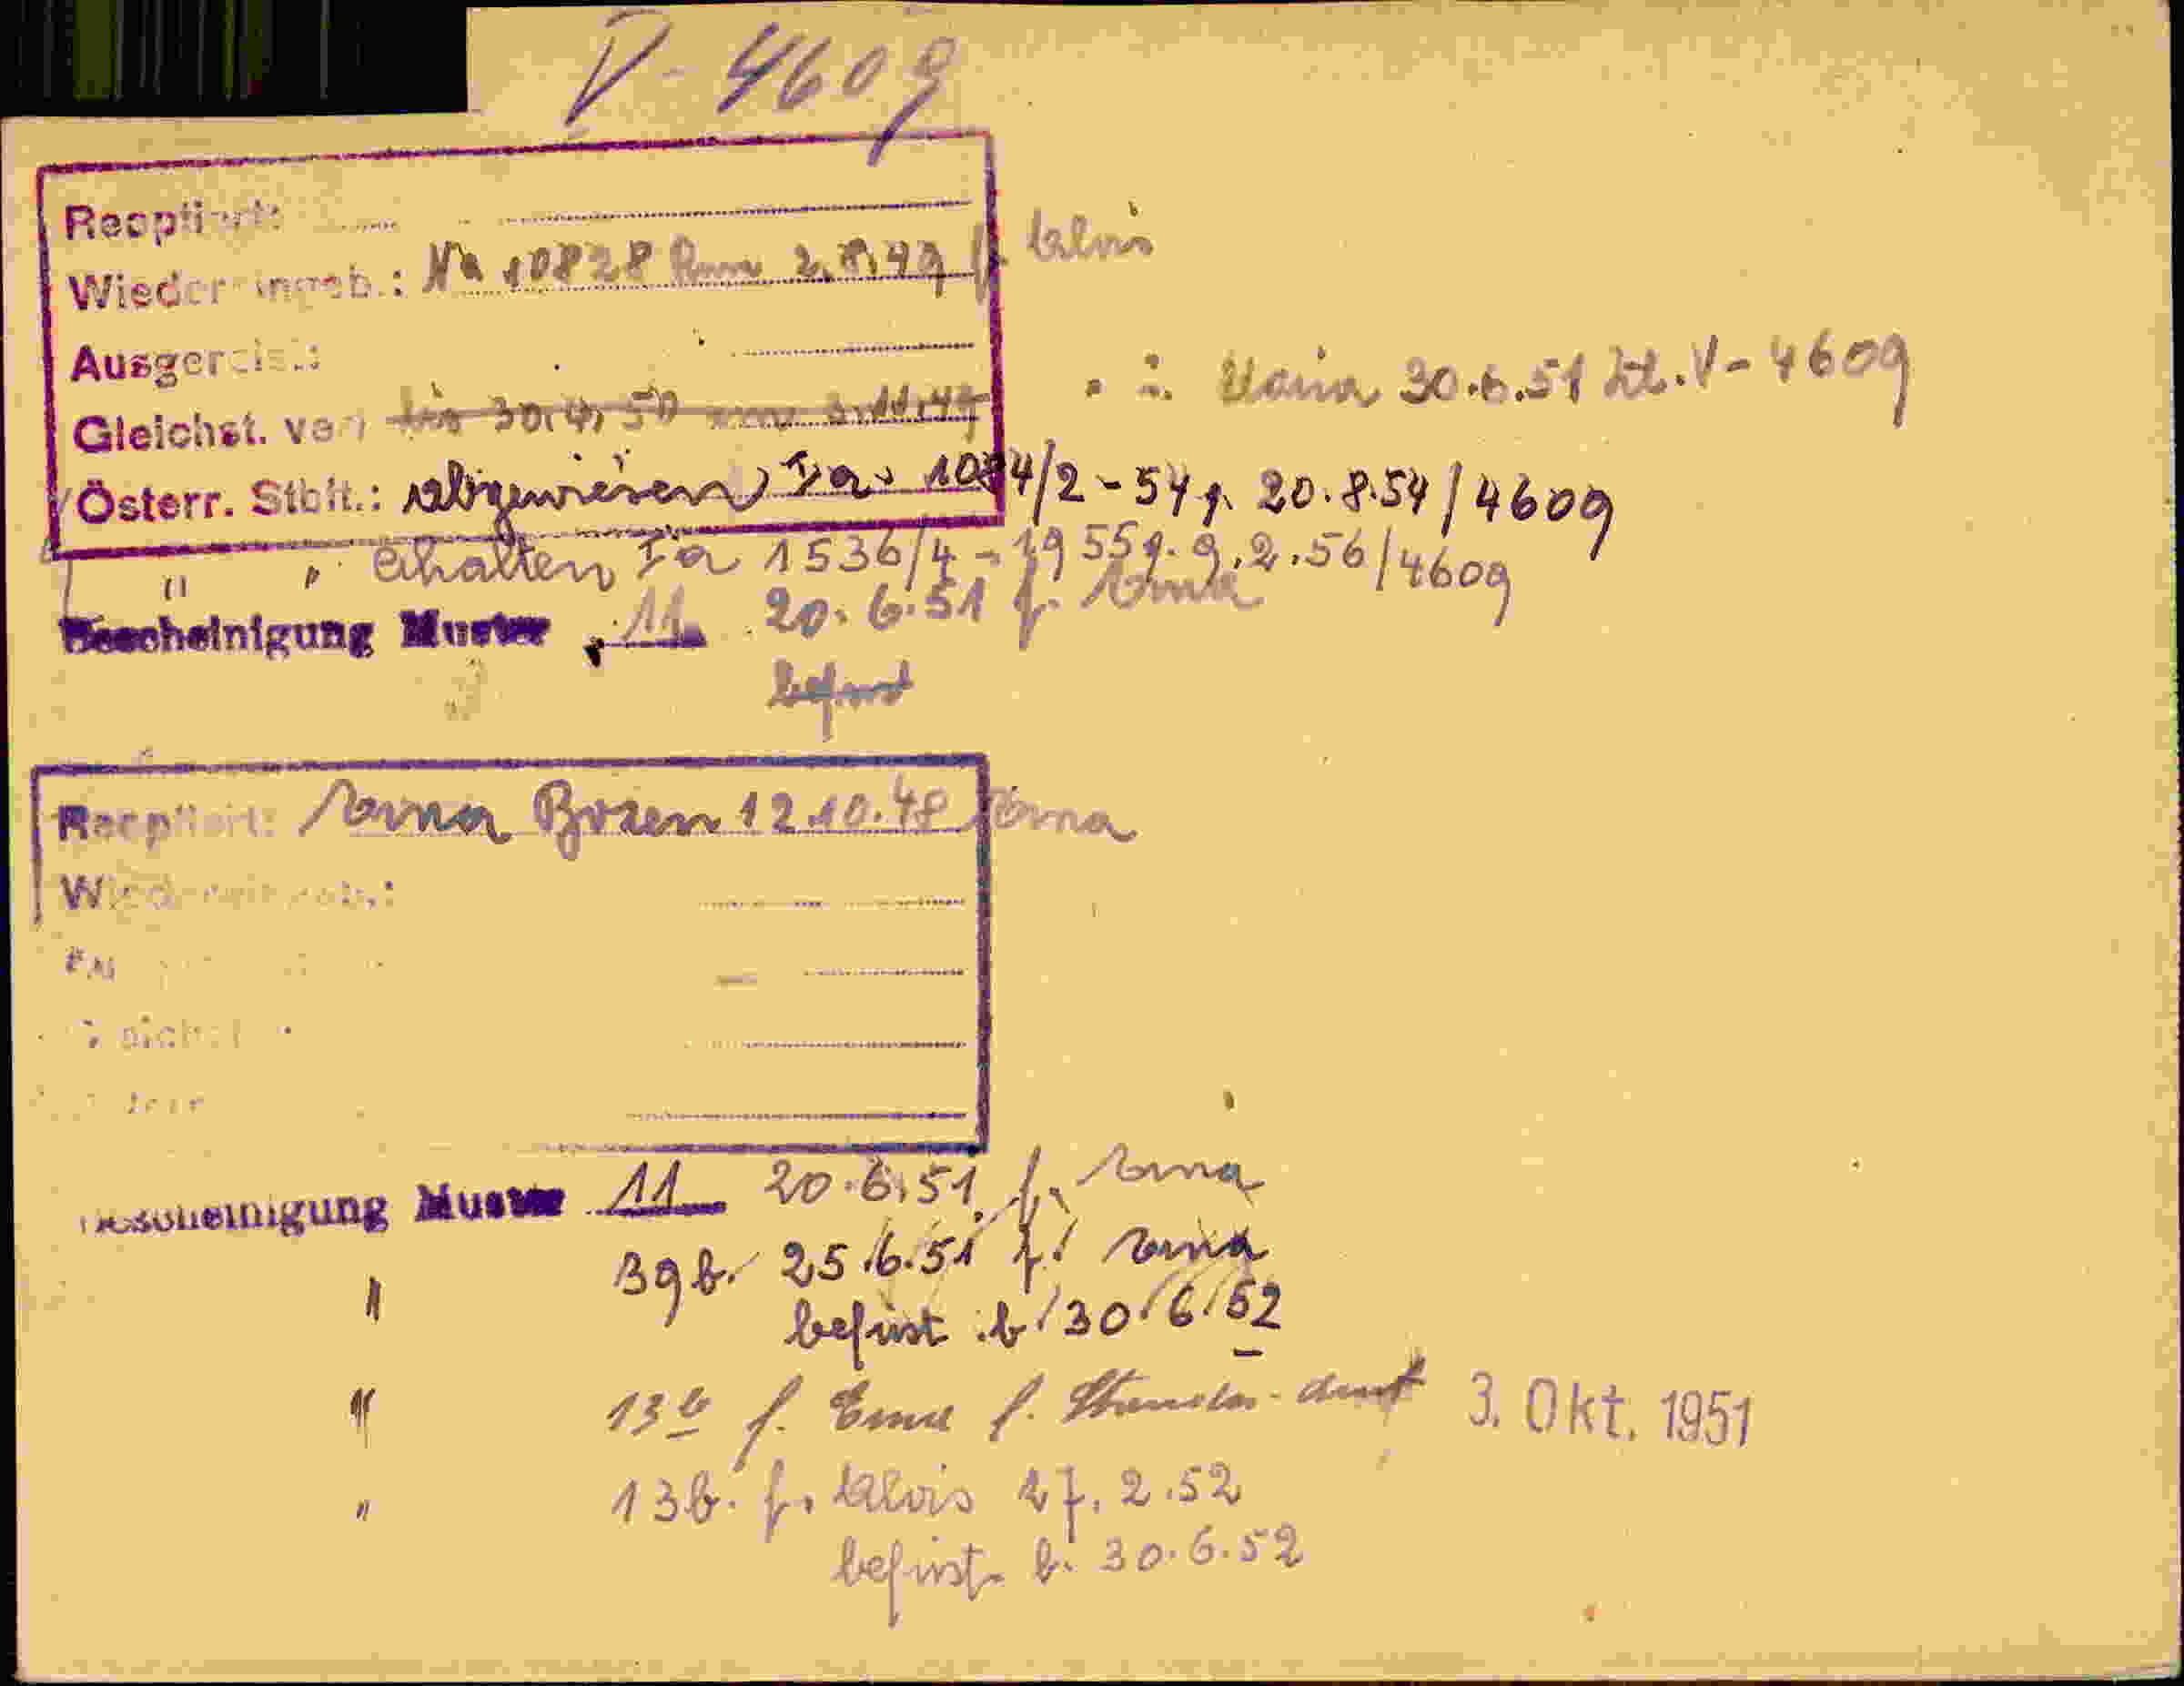 V-4609
Reoptiert:
Wiedereingeb.: Na 10828 Rom 2.8.49 f. Alois
Ausgereist:
". ". Maria 30.6.51 Zl. V-4609
Gleichst. von bis 30.4.50 vom 3.11.49
Österr. Stbft.: abgewiesen Ia- 1084/2-54 v. 20.8.54/4609
" " erhalten Ia 1536/4-1955 v. 9.2.56/4609
Bescheinigung Muster 11 20.6.51 f. Anna
befrist
Reoptiert: Anna Bozen 12.10.48 Anna
Wiedereingeb.:
Bescheinigung Muster 11 20.6.51. f. Anna
" 39b. 25.6.51 f. Anna
befrist. b. 30.6.52
" 13b f. Erna f. 3. Okt. 1951
" 13b. f. Alois 27.2.52
befrist. b. 30.6.52